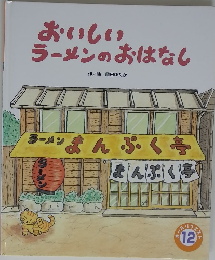 おいしい
ラーメンのおはなし
ラーメン まんぷく亭
まんぷく亭
ラーメン
12